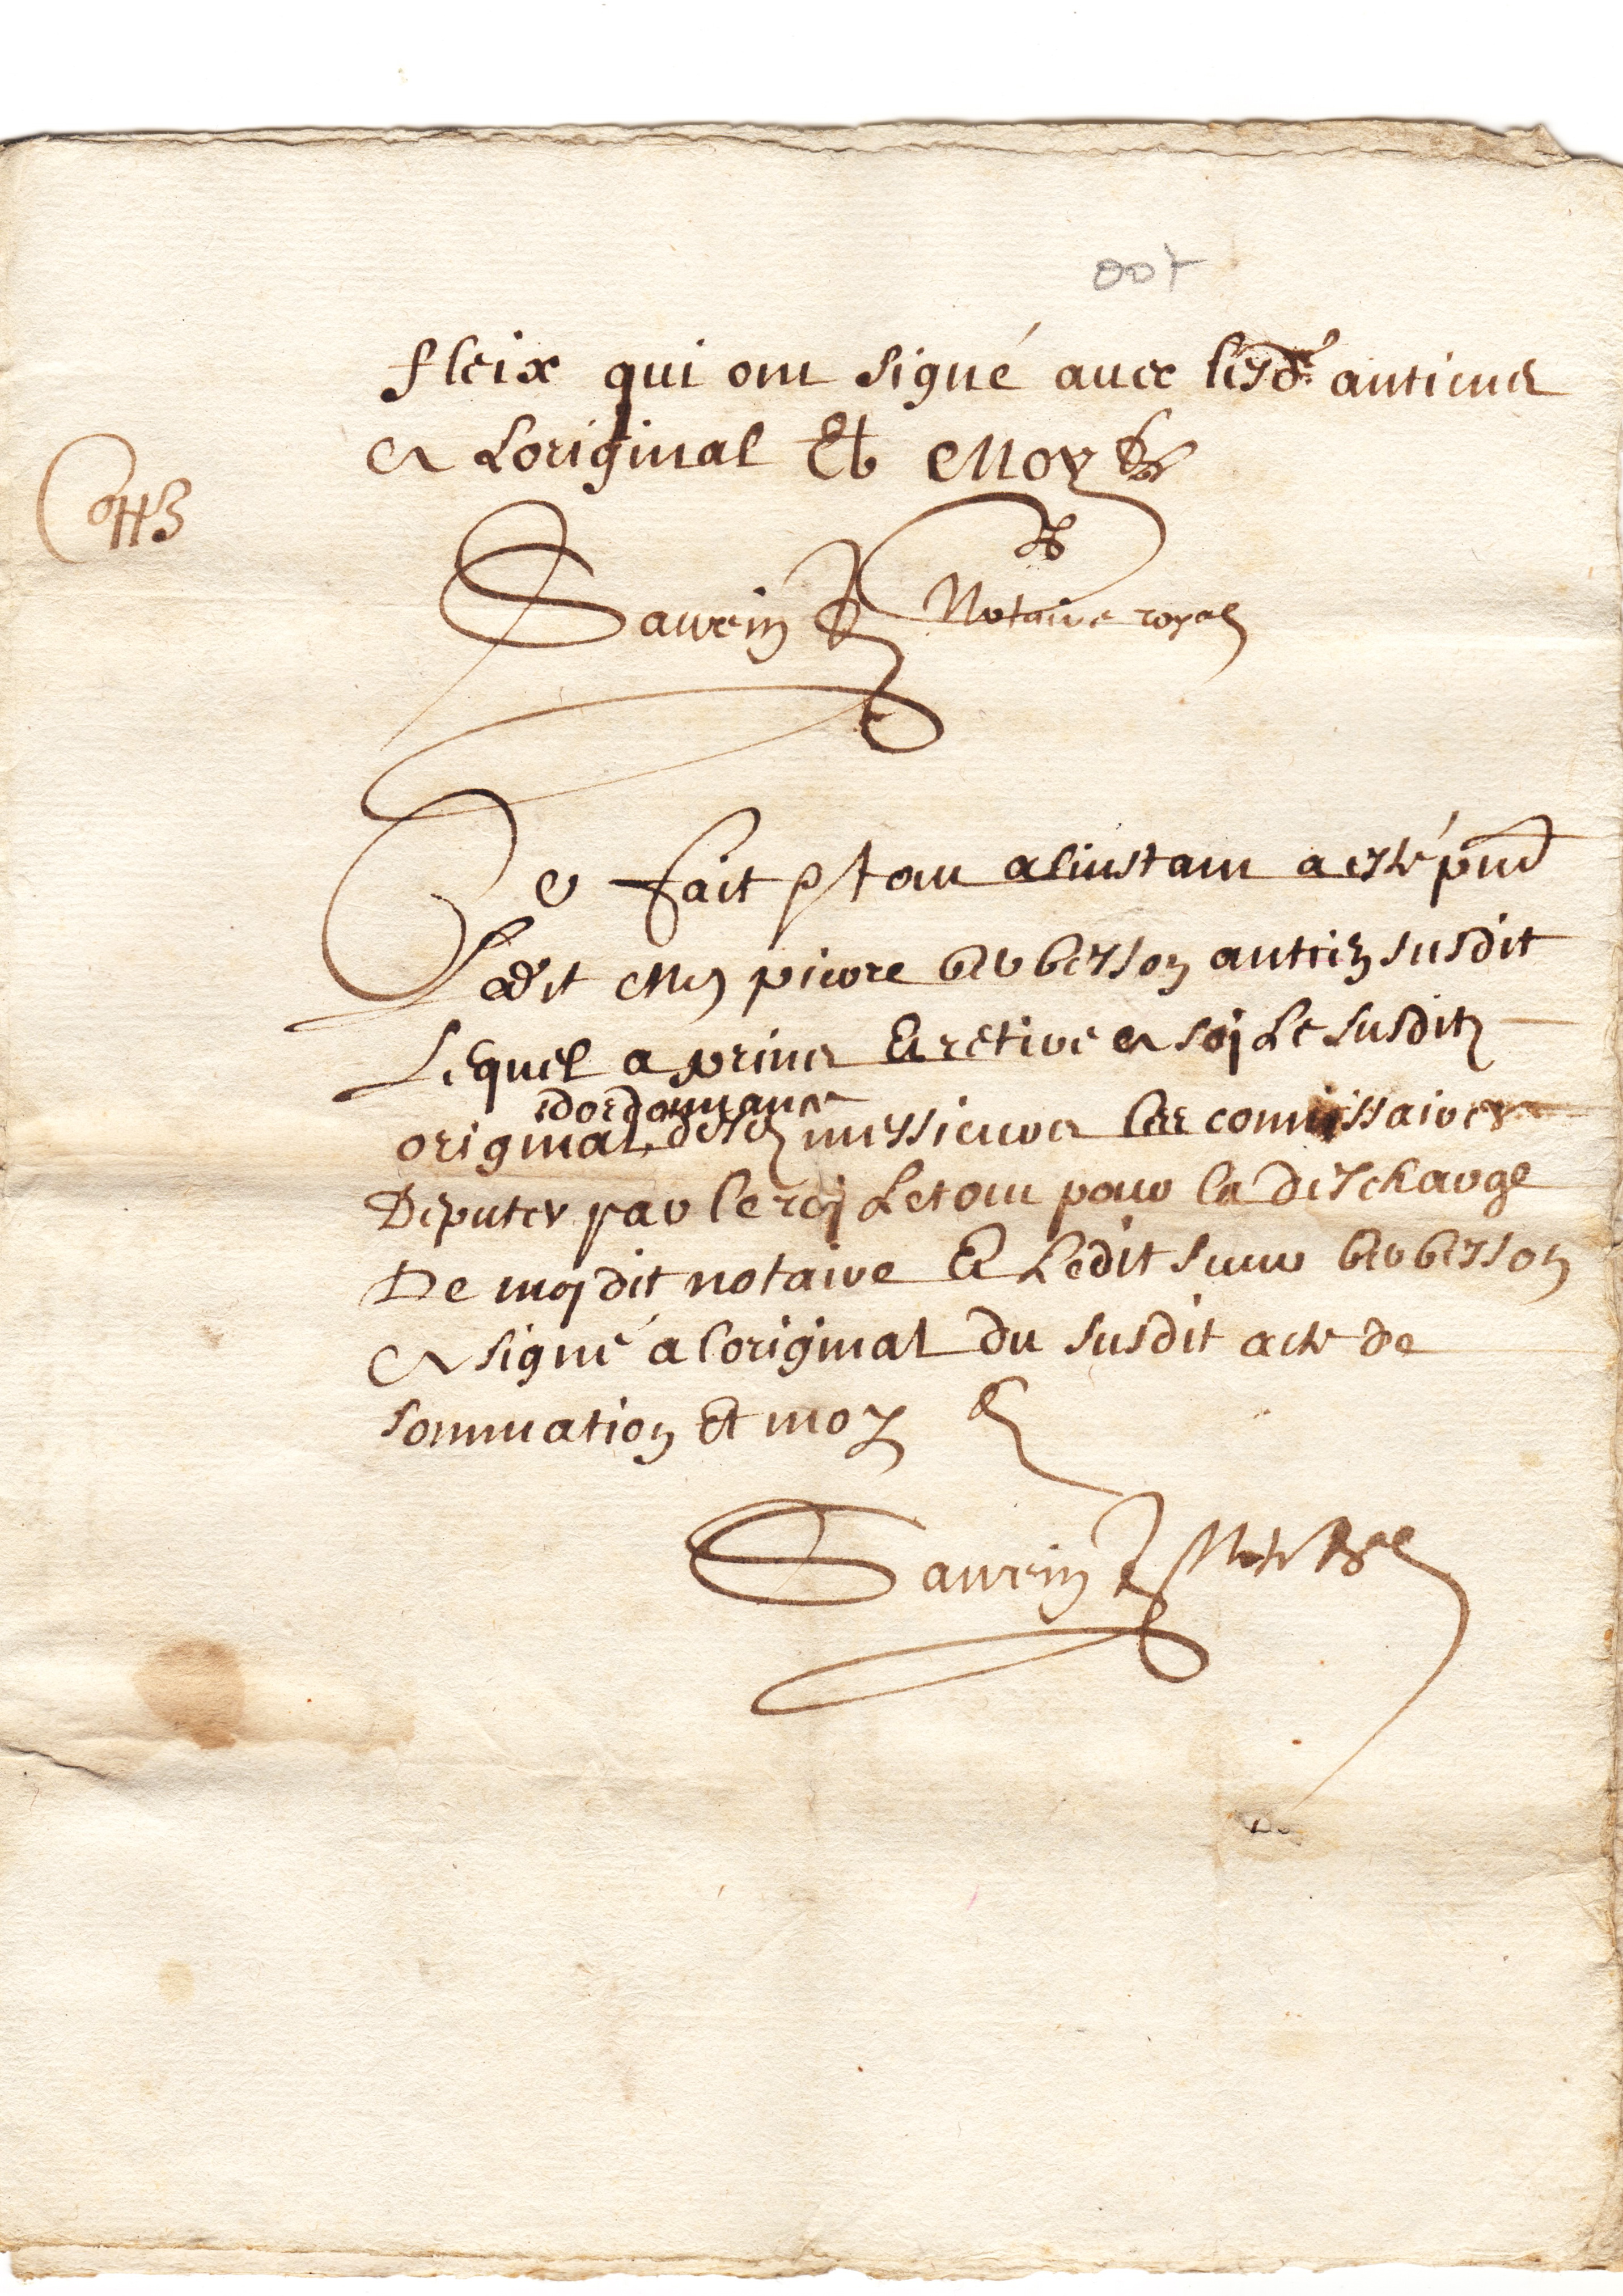 007
fleix qui ont signé avec lesd. antiens
a Loriginal Et Moy
Saurin Notaire royal
Ce fait & tout a linstant a esté pnt
Ledit Me pierre berbesson antien susdit
Lequel a prins & retiré a soj Le susdit
dordonnance
original desd. messieurs les commissaires
Deputes par le roj Le tout pour la descharge
De moj dit notaire & Ledit sieur berbesson
a signé a loriginal du susdit acte de
sommation Et moy
Saurin Note Ral